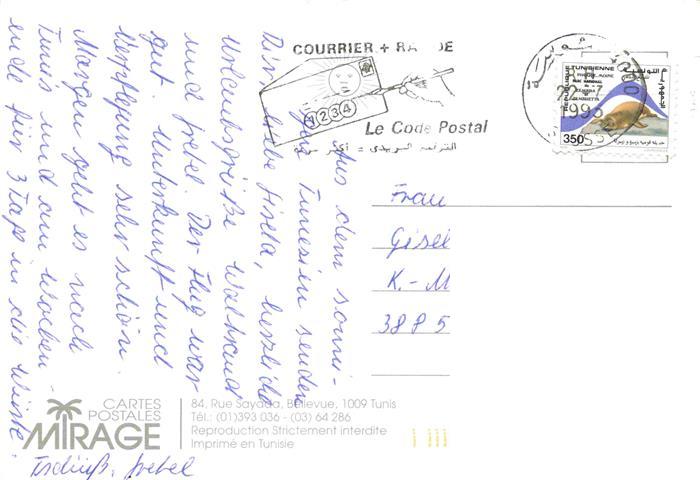 Aus dem sonni-
gen Tunesien senden
Dir, liebe Gisela, herzliche
Urlaubsgrüße Waltraud
und Frebel. Der Flug war
gut, Unterkunft und
Verpflegung sehr schön.
Morgen geht es nach
Tunis und am Wochen-
ende für 3 Tage in die Wüste.
Tschüß, Frebel
COURRIER + RA DE
1234
Le Code Postal
الترقيم البريدي = أكثر سرعة
REPUBLIQUE TUNISIENNE
350
1995
Frau
Gisel
K.-M
3885
CARTES
POSTALES
MIRAGE
84, Rue Sayada, Bellevue, 1009 Tunis
Tél.: (01)393 036 - (03) 64 286
Reproduction Strictement interdite
Imprimé en Tunisie